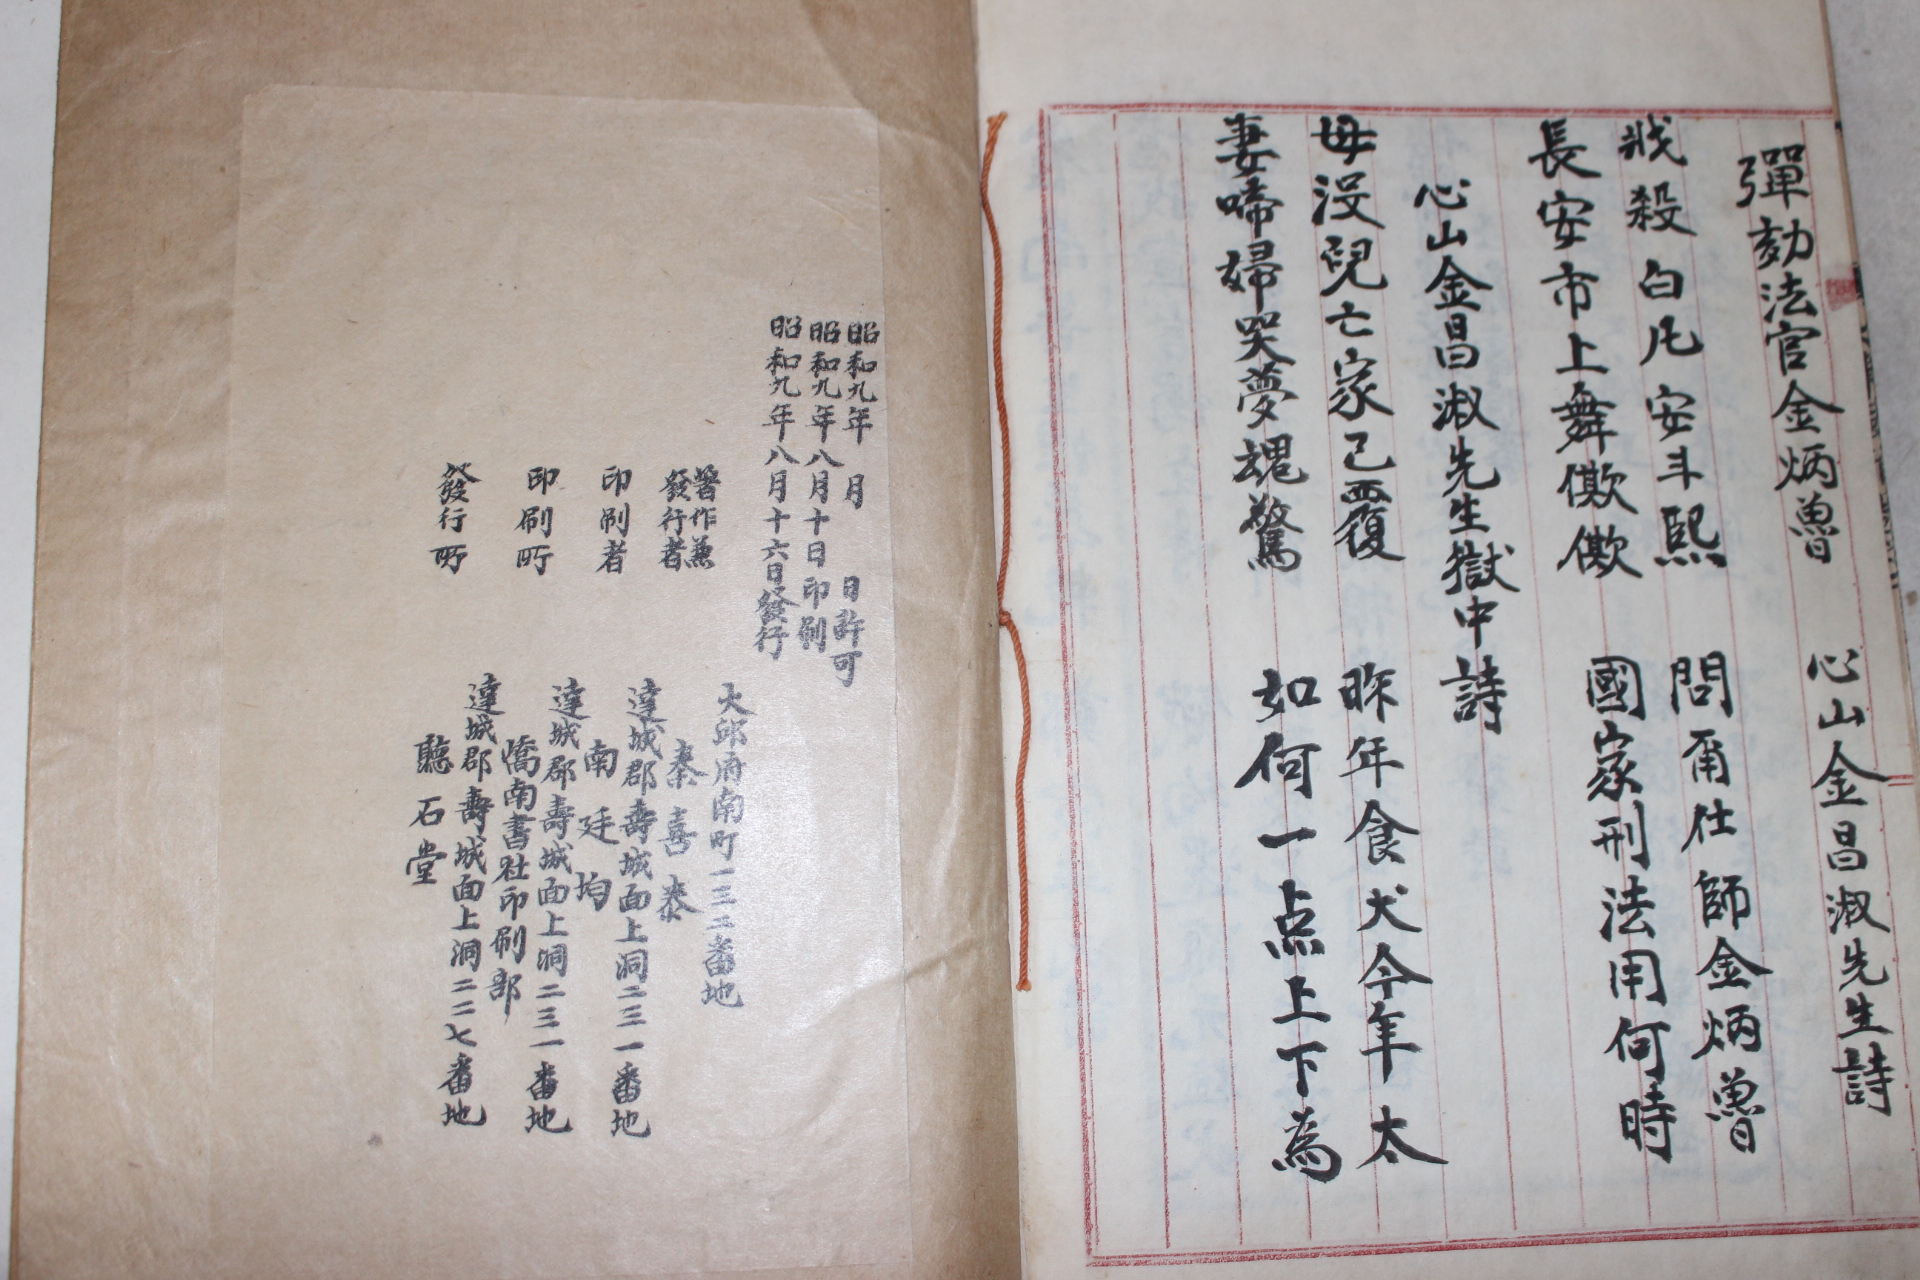 彈劾法官金炳魯 心山金昌淑先生詩
戕殺白凡安斗熙 問甭仕師金炳魯
長安市上舞僛僛 國家刑法用何時
心山金昌淑先生獄中詩
母沒兒亡家已覆 昨年食犬今年太
妻啼婦哭夢魂驚 如何一点上下為
昭和九年 月 日許可
昭和九年八月十日印刷
昭和九年八月十六日發行
大邱府南町一三二番地
著作兼
發行者 秦喜泰
達城郡壽城面上洞二三一番地
印刷者 南廷均
達城郡壽城面上洞二三一番地
印刷所 嶠南書社印刷部
達城郡壽城面上洞二二七番地
發行所 聽石堂